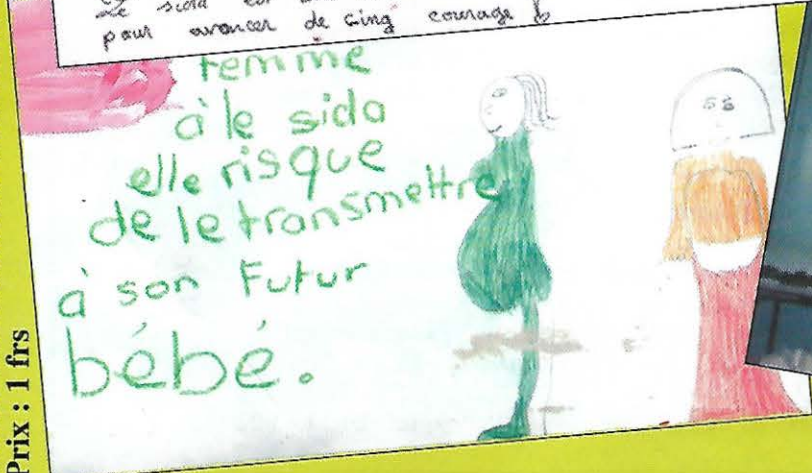 Le sida est
pour avancer de cinq courage
femme
à le sida
elle risque
de le transmettre
à son Futur
bébé.
Prix : 1 frs